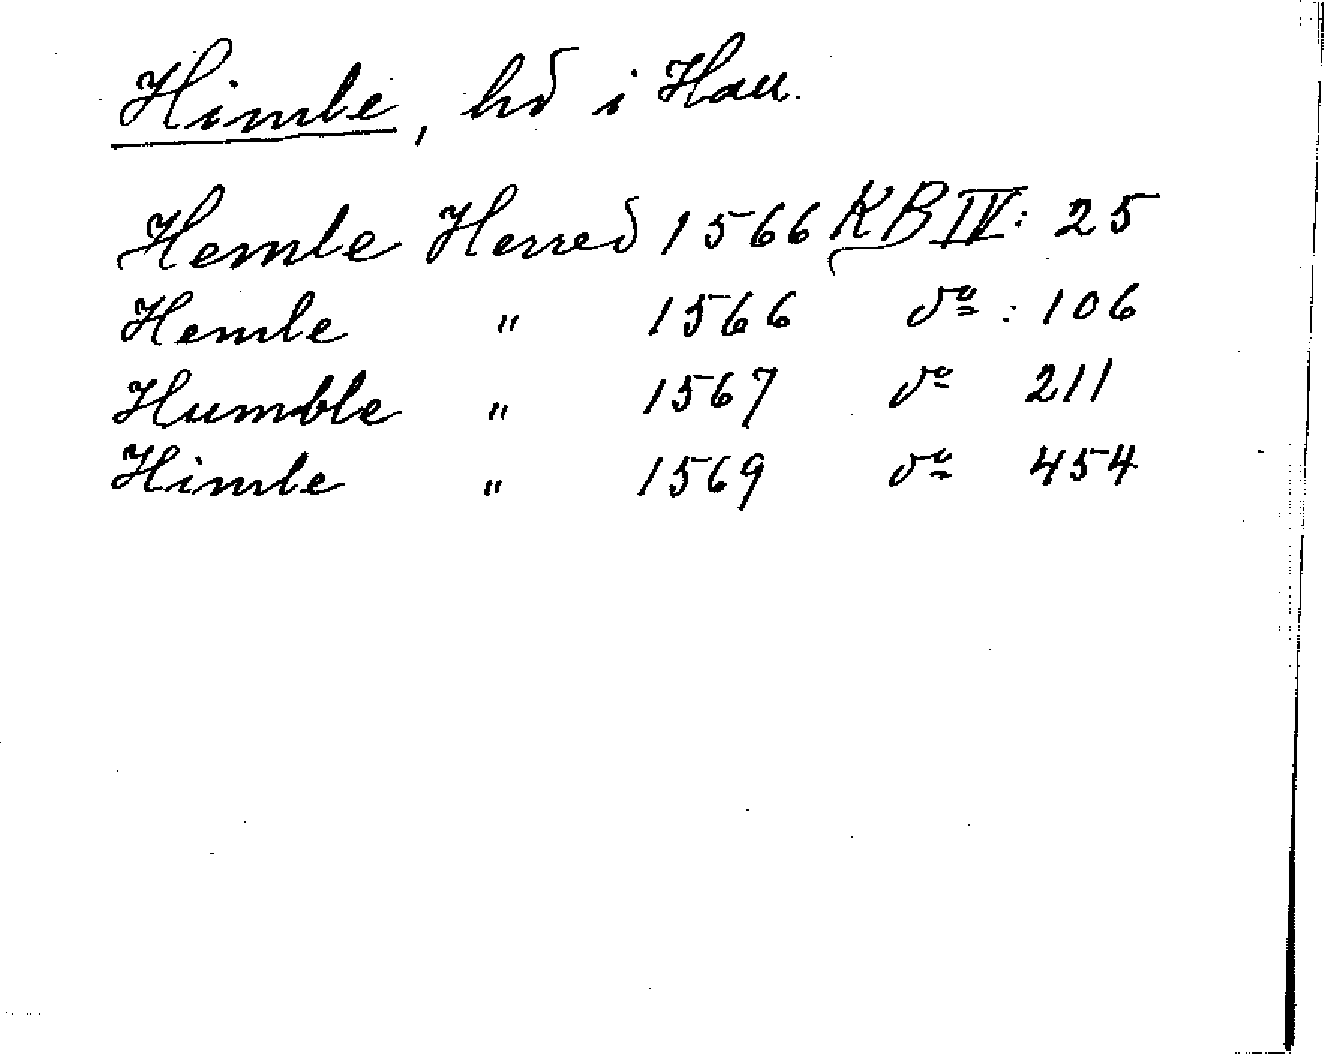 Himle, hd i Hall.
Hemle Herred 1566 KB IV: 25
Hemle " 1566 do : 106
Humble " 1567 do 211
Himle " 1569 do 454